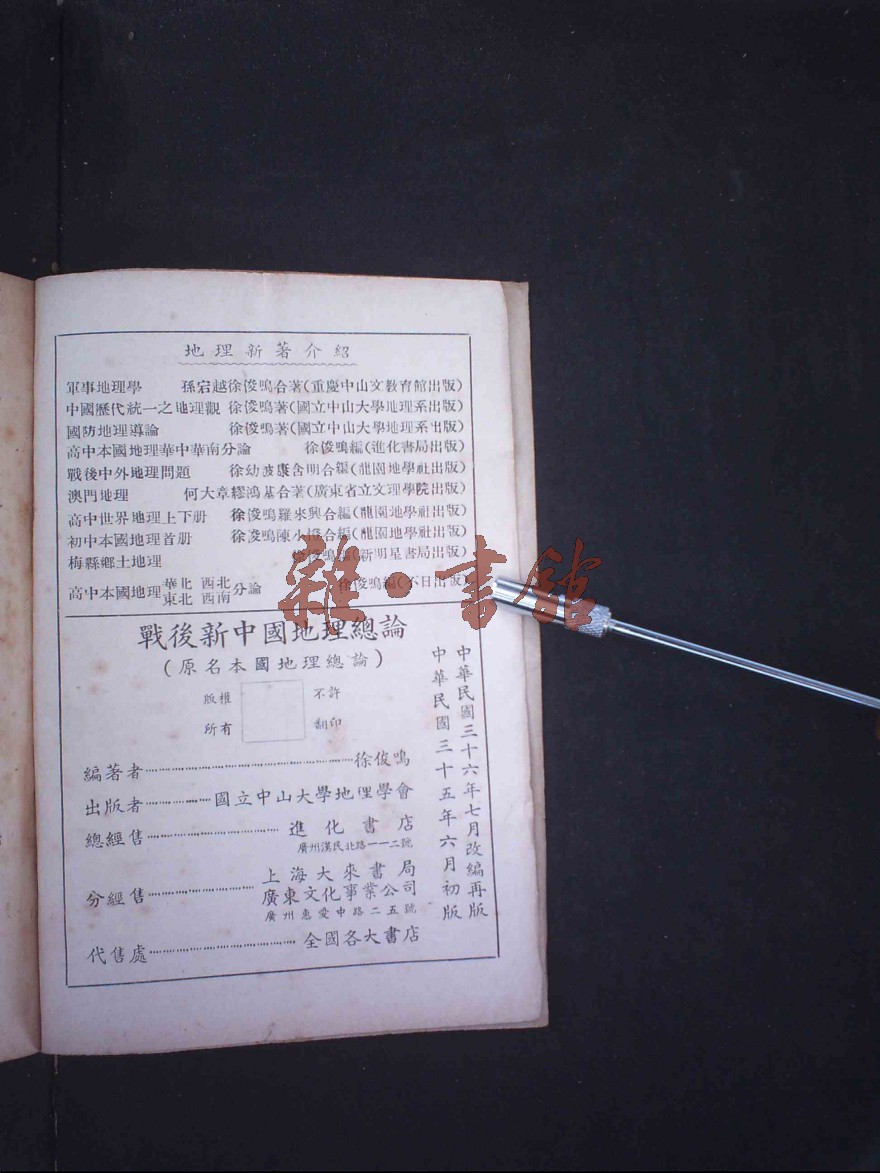 地理新著介紹
軍事地理學 孫宕越徐俊鳴合著(重慶中山文教育館出版)
中國歷代統一之地理觀 徐俊鳴著(國立中山大學地理系出版)
國防地理導論 徐俊鳴著(國立中山大學地理系出版)
高中本國地理華中華南分論 徐俊鳴編(進化書局出版)
戰後中外地理問題 徐幼波康含明合編(龍園地學社出版)
澳門地理 何大章繆鴻基合著(廣東省立文理學院出版)
高中世界地理上下册 徐俊鳴羅來興合編(龍園地學社出版)
初中本國地理首册 徐俊鳴陳小澄合編(龍園地學社出版)
梅縣鄉土地理 徐俊鳴編(新明星書局出版)
高中本國地理華北 西北 東北 西南分論 徐俊鳴編(不日出版)
雜·書館
戰後新中國地理總論
(原名本國地理總論)
版權 不許
所有 翻印
編著者 徐俊鳴
出版者 國立中山大學地理學會
總經售 進化書店
廣州漢民北路一一二號
分經售 上海大來書局
廣東文化事業公司
廣州惠愛中路二五號
代售處 全國各大書店
中華民國三十六年七月改編再版
中華民國三十五年六月初版